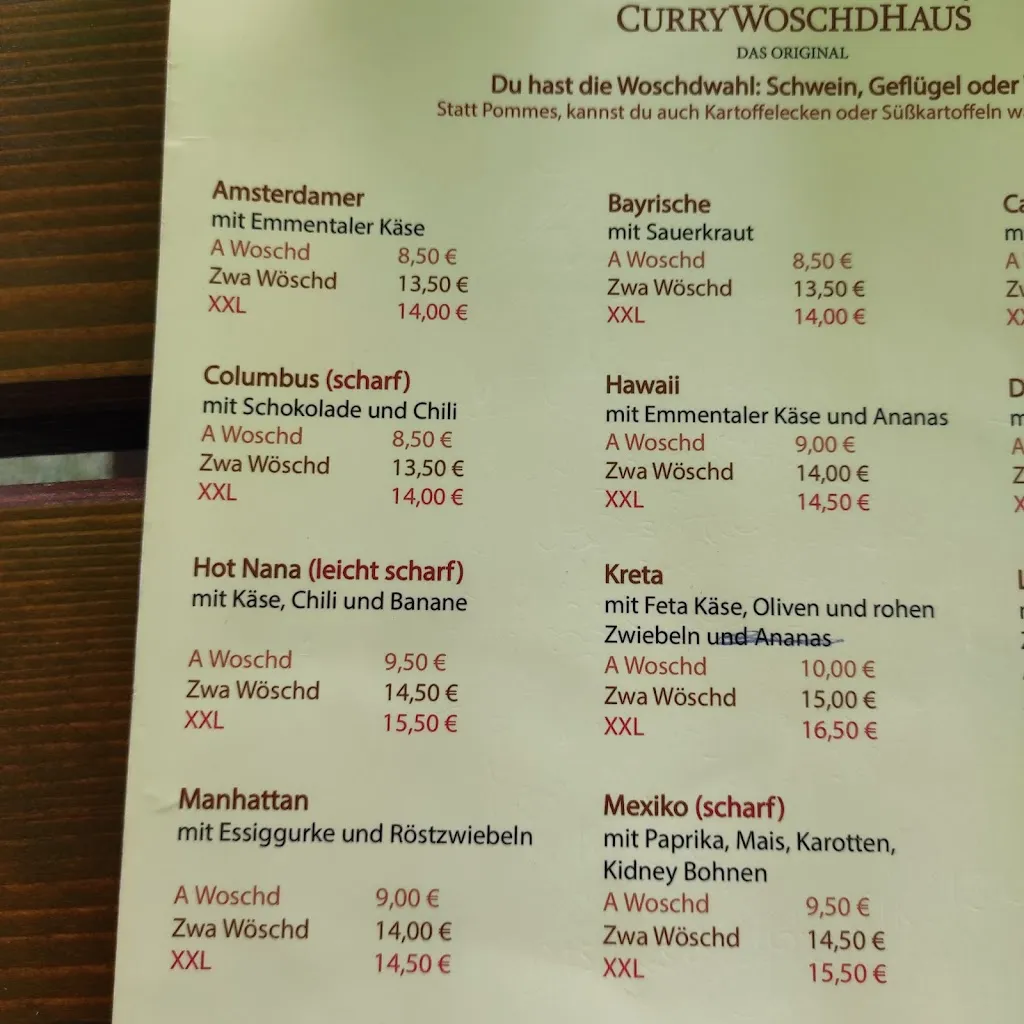 CURRYWOSCHDHAUS
DAS ORIGINAL
Du hast die Woschdwahl: Schwein, Geflügel oder
Statt Pommes, kannst du auch Kartoffelecken oder Süßkartoffeln
Amsterdamer
mit Emmentaler Käse
A Woschd 8,50 €
Zwa Wöschd 13,50 €
XXL 14,00 €
Bayrische
mit Sauerkraut
A Woschd 8,50 €
Zwa Wöschd 13,50 €
XXL 14,00 €
Columbus (scharf)
mit Schokolade und Chili
A Woschd 8,50 €
Zwa Wöschd 13,50 €
XXL 14,00 €
Hawaii
mit Emmentaler Käse und Ananas
A Woschd 9,00 €
Zwa Wöschd 14,00 €
XXL 14,50 €
Hot Nana (leicht scharf)
mit Käse, Chili und Banane
A Woschd 9,50 €
Zwa Wöschd 14,50 €
XXL 15,50 €
Kreta
mit Feta Käse, Oliven und rohen
Zwiebeln und Ananas
A Woschd 10,00 €
Zwa Wöschd 15,00 €
XXL 16,50 €
Manhattan
mit Essiggurke und Röstzwiebeln
A Woschd 9,00 €
Zwa Wöschd 14,00 €
XXL 14,50 €
Mexiko (scharf)
mit Paprika, Mais, Karotten,
Kidney Bohnen
A Woschd 9,50 €
Zwa Wöschd 14,50 €
XXL 15,50 €